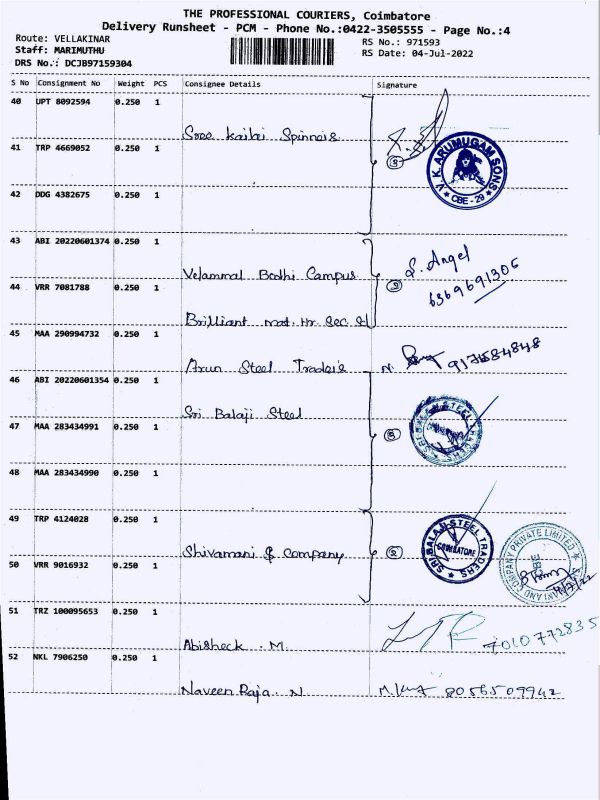 THE PROFESSIONAL COURIERS, Coimbatore
Delivery Runsheet - PCM - Phone No.:0422-3505555 - Page No.:4
Route: VELLAKINAR
RS No.: 971593
Staff: MARIMUTHU
RS Date: 04-Jul-2022
DRS No.: DCJB97159304
S No Consignment No Weight PCS Consignee Details Signature
40 UPT 8092594 0.250 1
Sree Kailai Spinners
3
V.K. ARUMUGAM SONS
CBE - 29
41 TRP 4669052 0.250 1
42 DDG 4382675 0.250 1
43 ABI 20220601374 0.250 1
Velammal Bodhi Campus
S. Angel
6369691306
44 VRR 7081788 0.250 1
Brilliant mat. Hr. Sec. Sl
45 MAA 290994732 0.250 1
Arun Steel Traders
N.
46 ABI 20220601354 0.250 1
Sri Balaji Steel
SRI BALAJI STEEL TRADERS
47 MAA 283434991 0.250 1
48 MAA 283434990 0.250 1
49 TRP 4124028 0.250 1
Shivamani & Company
2
SRI BALAJI STEEL TRADERS
COIMBATORE
AND COMPANY PRIVATE LIMITED
50 VRR 9016932 0.250 1
4/7/22
51 TRZ 100095653 0.250 1
Abisheck . M.
7010772835
52 NKL 7906250 0.250 1
Naveen Raja . N
8056509942